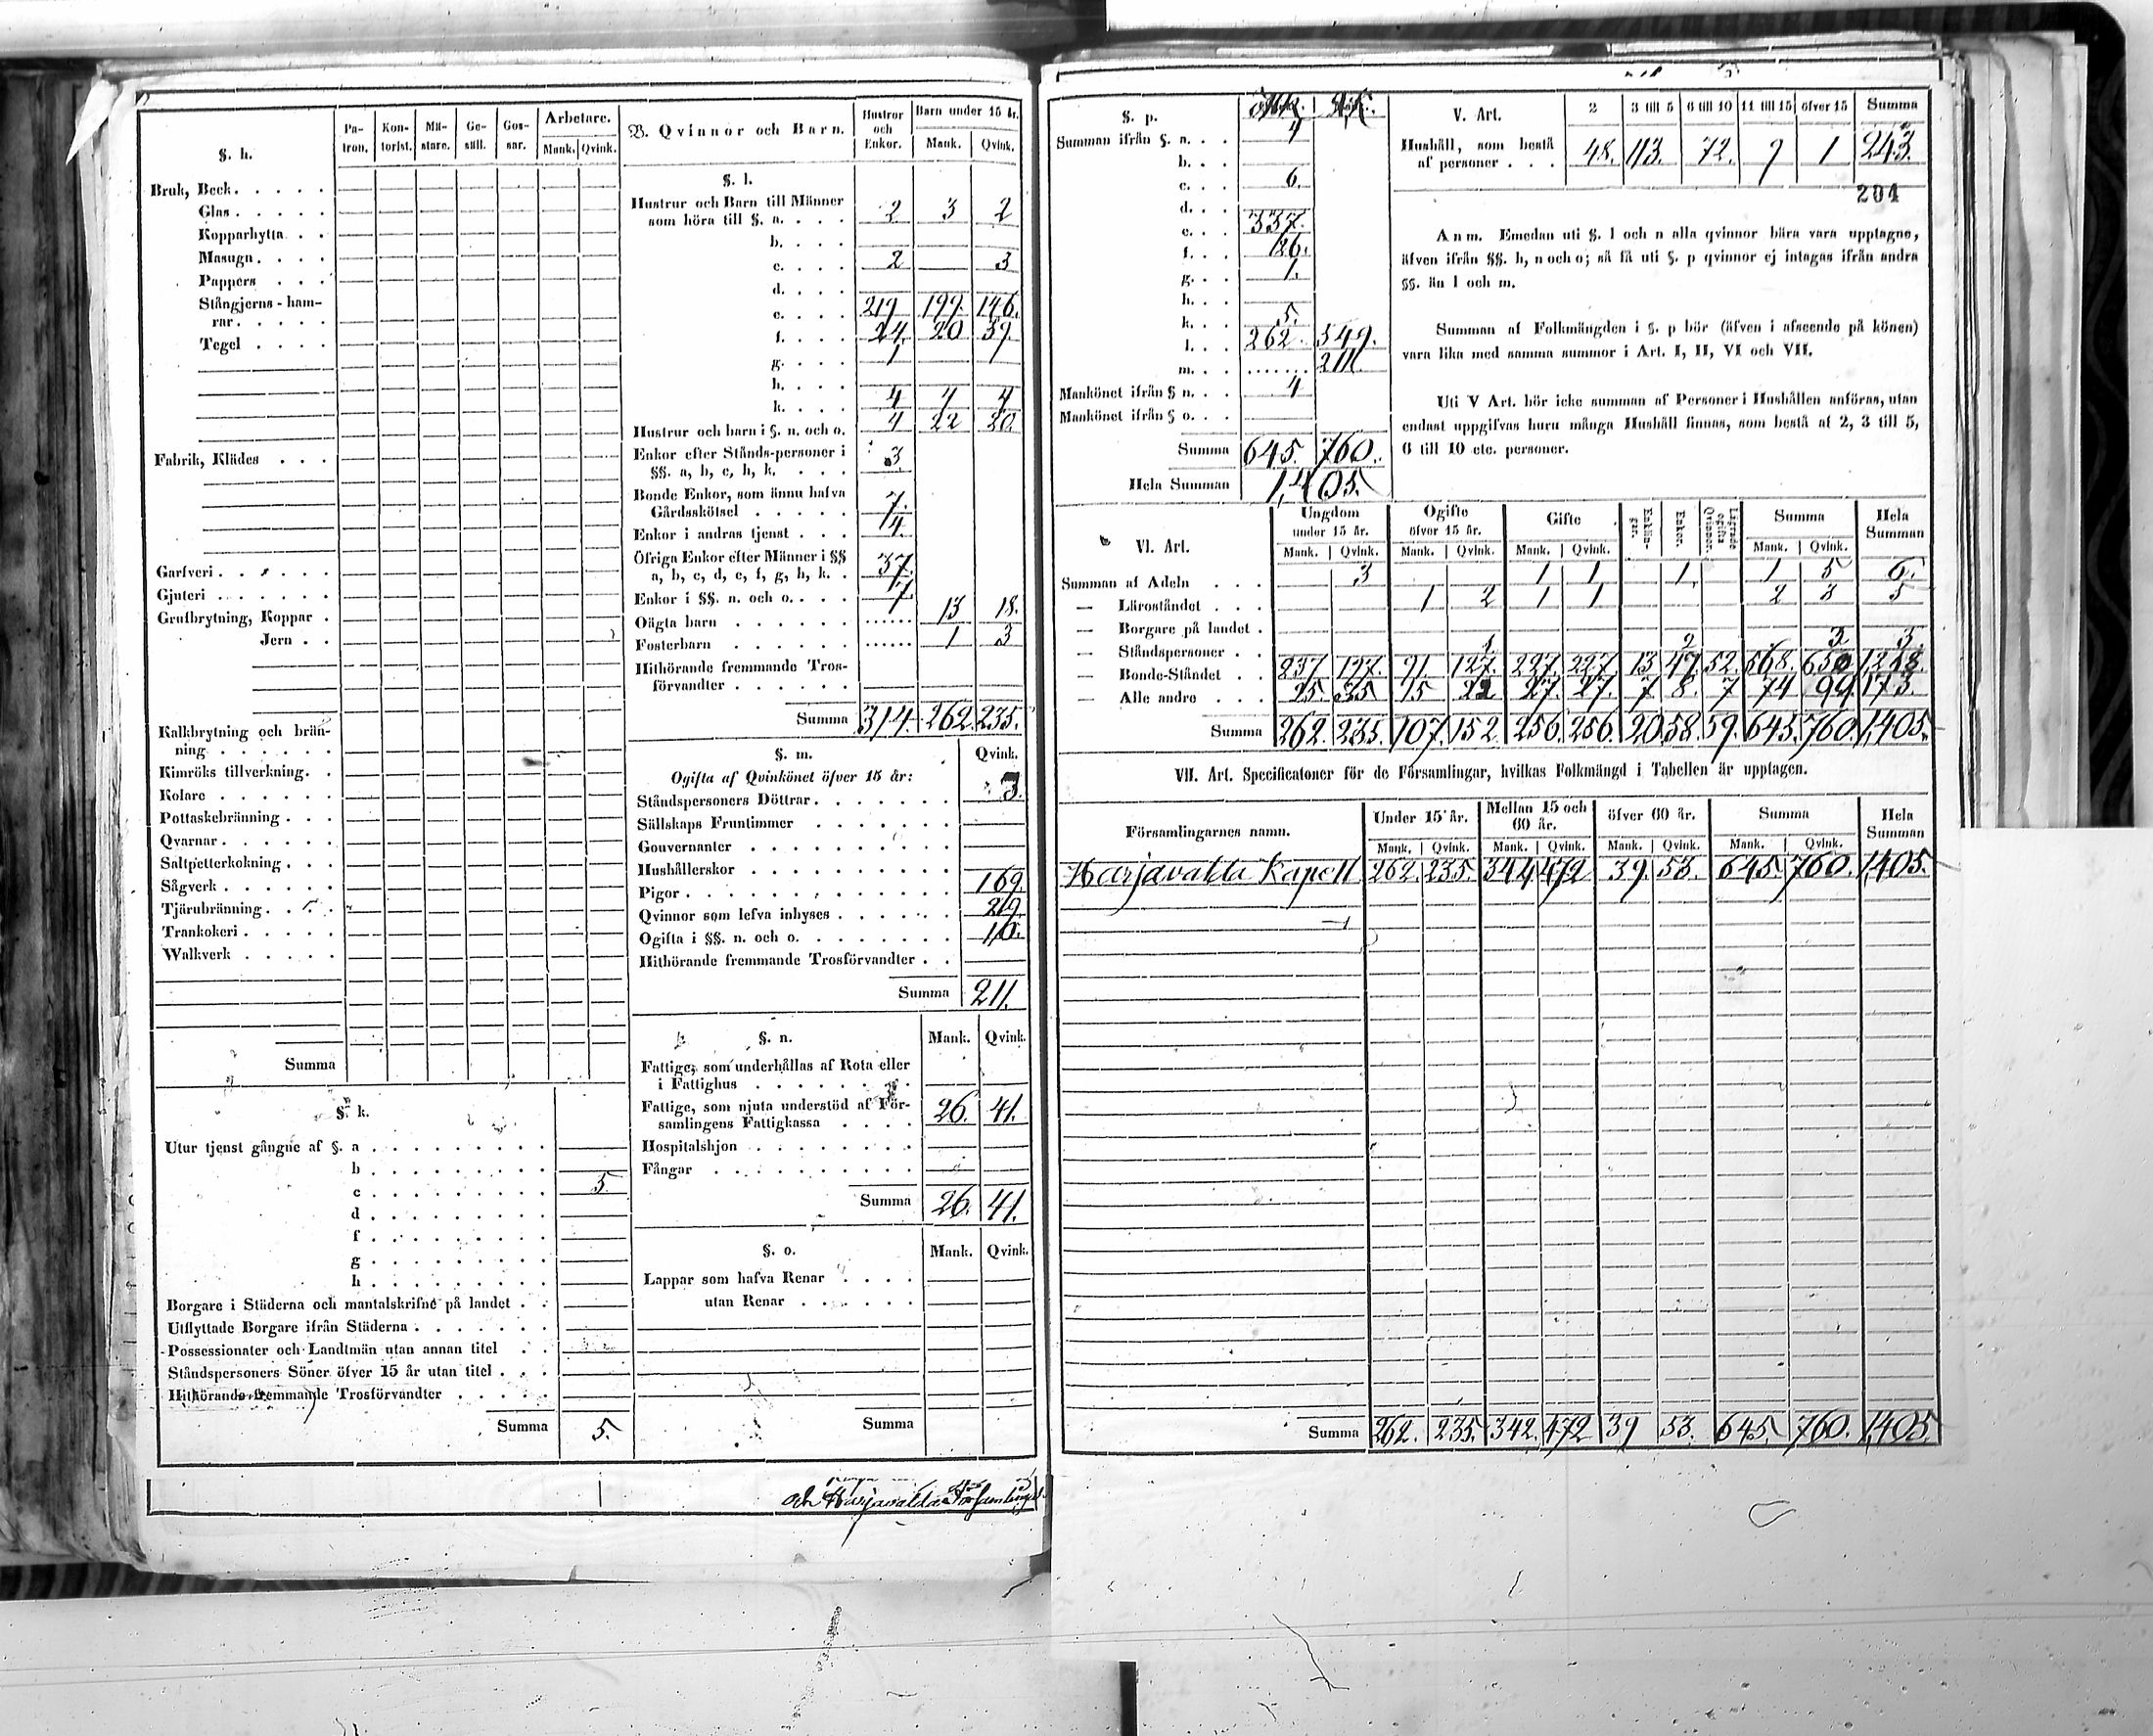 §. h.
Pa-tron. Kon-torist. Mä-stare. Ge-säll. Gos-sar. Arbetare.
Mank. Qvink.
Bruk, Beck . . . . .
Glas . . . . .
Kopparhytta . .
Masugn . . . .
Pappers . . .
Stångjerns-ham-
rar . . . . .
Tegel . . . .
Fabrik, Klädes . . .
Garfveri . . . . . .
Gjuteri . . . . . .
Grufbrytning, Koppar .
Jern . .
Kalkbrytning och brän-
ning . . . . . .
Kimröks tillverkning . .
Kolare . . . . . .
Pottaskebränning . . .
Qvarnar . . . . . .
Saltpetterkokning . . .
Sågverk . . . . . .
Tjärubränning . . . .
Trankokeri . . . . .
Walkverk . . . . .
Summa
§. k.
Utur tjenst gångne af §. a . . . . . . . . .
b . . . . . . . . .
c . . . . . . . . . 5.
d . . . . . . . . .
f . . . . . . . . .
g . . . . . . . . .
h . . . . . . . . .
Borgare i Städerna och mantalskrifne på landet . .
Utflyttade Borgare ifrån Städerna . . . . . . .
Possessionater och Landtmän utan annan titel . .
Ståndspersoners Söner öfver 15 år utan titel . . .
Hithörande fremmande Trosförvandter . . . . .
Summa 5.
B. Qvinnor och Barn. Hustror och Enkor. Barn under 15 år.
Mank. Qvink.
§. l.
Hustrur och Barn till Männer
som höra till §. a. . . . 2 3 2
b. . . .
c. . . . 2 3
d. . . .
e. . . . 219 197. 146.
f. . . . 24. 20 39.
g. . . . 1 1
h. . . .
k. . . . 4 4
Hustrur och barn i §. n. och o. 4 22 20.
Enkor efter Stånds-personer i
§§. a, b, c, h, k. . . . 3
Bonde Enkor, som ännu hafva
Gårdsskötsel . . . . . 7.
Enkor i andras tjenst . . . 4.
Öfriga Enkor efter Männer i §§
a, b, c, d, e, f, g, h, k. . 37.
Enkor i §§. n. och o. . . .
Oägta barn . . . . . . ...... 13 18.
Fosterbarn . . . . . . ...... 1 3
Hithörande fremmande Tros-
förvandter . . . . . .
Summa 314. 262. 235.
§. m. Qvink.
Ogifta af Qvinkönet öfver 15 år:
Ståndspersoners Döttrar . . . . . . . 3.
Sällskaps Fruntimmer . . . . . . .
Gouvernanter . . . . . . . . . .
Hushållerskor . . . . . . . . . .
Pigor . . . . . . . . . . . . 169.
Qvinnor som lefva inhyses . . . . . .
Ogifta i §§. n. och o. . . . . . . . 10.
Hithörande fremmande Trosförvandter . .
Summa 211.
§. n. Mank. Qvink.
Fattige, som underhållas af Rota eller
i Fattighus . . . . . . . .
Fattige, som njuta understöd af För-
samlingens Fattigkassa . . . . 26. 41.
Hospitalshjon . . . . . . . .
Fångar . . . . . . . . . .
Summa 26. 41.
§. o. Mank. Qvink.
Lappar som hafva Renar . . . .
utan Renar . . . . . .
Summa
och Harjavalda Församlingar
§. p.
Summan ifrån §. a. . . 4
b. . .
c. . . 6.
d. . .
e. . . 337.
f. . . 26.
g. . . 1.
h. . .
k. . . 5.
l. . . 262. 549.
m. . . ....... 211.
Mankönet ifrån § n. . . 4
Mankönet ifrån § o. . .
Summa 645. 760.
Hela Summan 1,405.
V. Art. 2 3 till 5 6 till 10 11 till 15 öfver 15 Summa
Hushåll, som bestå
af personer . . . 48. 113. 72. 9 1 243.
204
Anm. Emedan uti §. l och n alla qvinnor bära vara upptagne,
äfven ifrån §§. h, n och o; så få uti §. p qvinnor ej intagas ifrån andra
§§. än l och m.
Summan af Folkmängden i §. p bör (äfven i afseende på könen)
vara lika med samma summor i Art. I, II, VI och VII.
Uti V Art. bör icke summan af Personer i Hushållen anföras, utan
endast uppgifvas huru många Hushåll finnas, som bestå af 2, 3 till 5,
6 till 10 etc. personer.
VI. Art. Ungdom under 15 år. Ogifte öfver 15 år. Gifte Enklin-gar. Enkor. Lägrade ogifta Qvinnor. Summa Hela Summan
Mank. Qvink. Mank. Qvink. Mank. Qvink. Mank. Qvink.
Summan af Adeln . . . 3 1 1 1. 1 5 6.
— Läroståndet . . . 1 2 1 1 2 3 5
— Borgare på landet .
— Ståndspersoner . . 1 2 3 3.
— Bonde-Ståndet . . 237 197. 91 127. 227. 227. 13 47. 52. 568. 650 1218.
— Alle andre . . . 25. 35 15 22 27. 27. 7 8. 7 74 99. 173.
Summa 262. 235. 107. 152. 256. 256. 20. 58. 59. 645. 760. 1,405.
VII. Art. Specificationer för de Församlingar, hvilkas Folkmängd i Tabellen är upptagen.
Församlingarnes namn. Under 15 år. Mellan 15 och 60 år. öfver 60 år. Summa Hela Summan
Mank. Qvink. Mank. Qvink. Mank. Qvink. Mank. Qvink.
Harjavalda Kapell 262. 235. 344 472 39. 53. 645. 760. 1,405.
Summa 262. 235. 342. 472 39 53. 645. 760. 1,405.